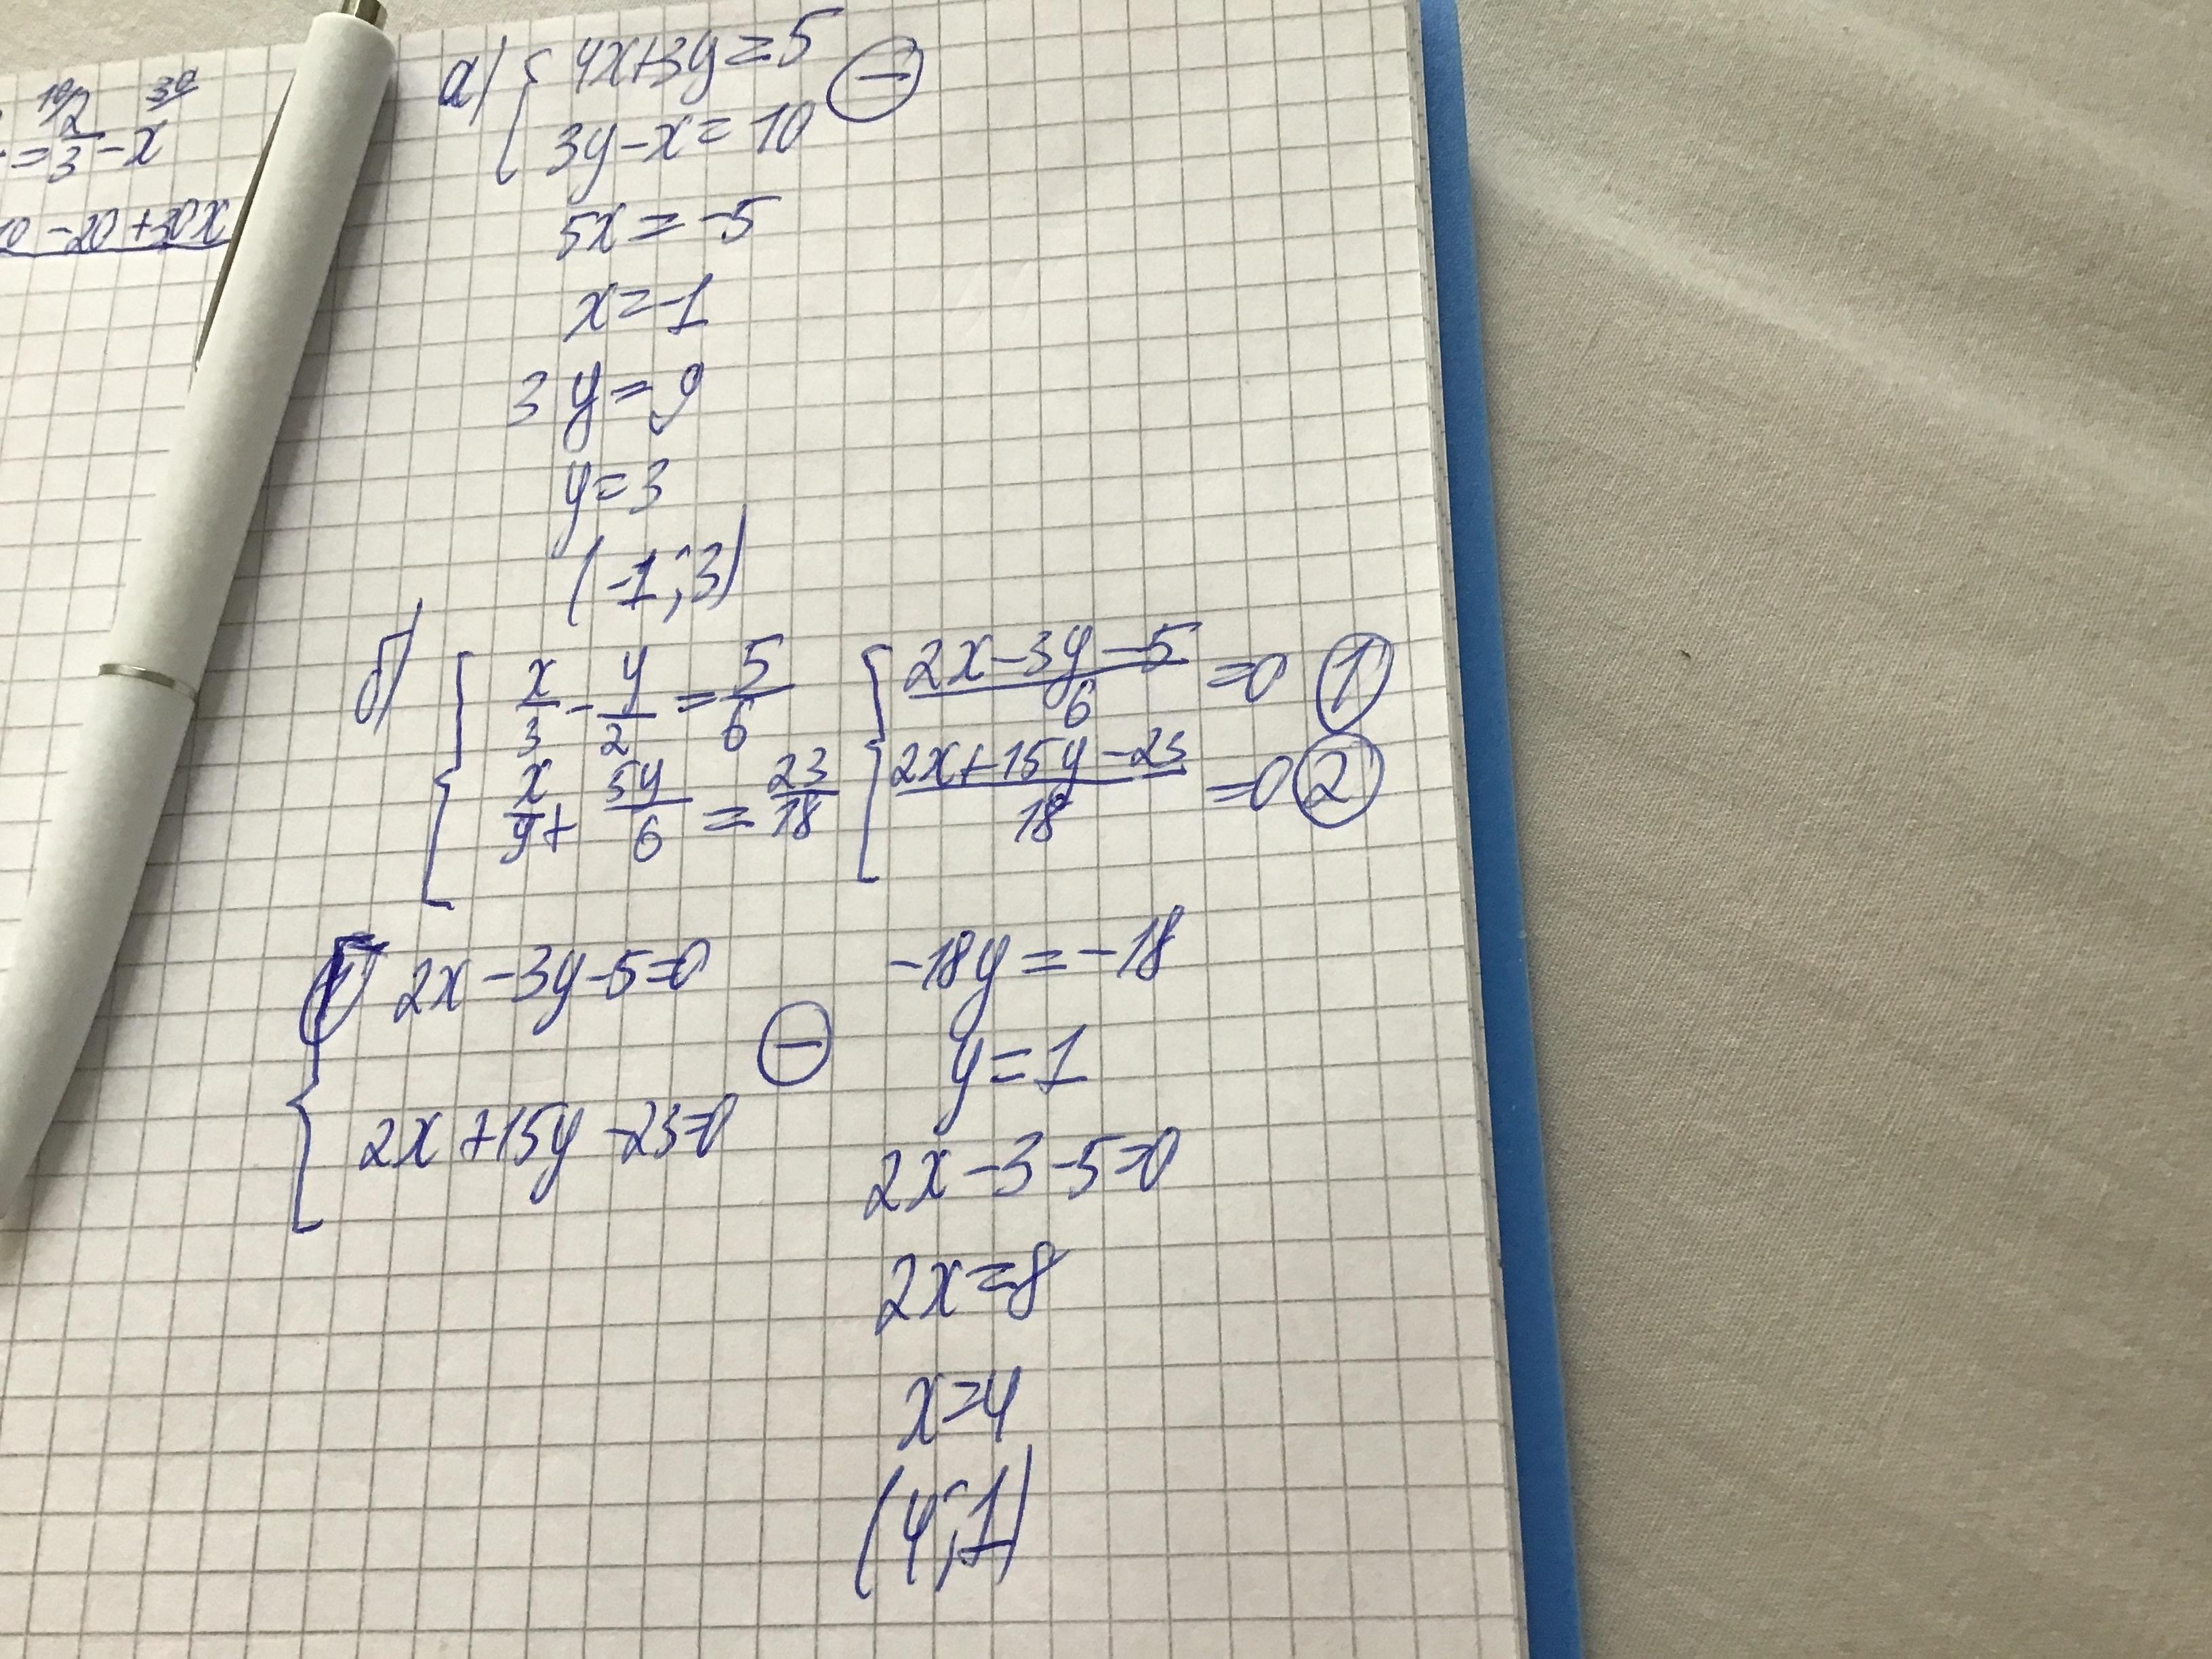 10/ 2/3 30/
= 2/3 - x
-20 + 30x
а) { 4x+3y=5 (−)
3y-x=10
5x=-5
x=-1
3y=9
y=3
(-1;3)
б) { x/3 - y/2 = 5/6 { (2x-3y-5)/6 =0 (1)
x/9 + 5y/6 = 23/18 (2x+15y-23)/18 =0 (2)
{ 2x-3y-5=0 (−)
2x+15y-23=0
-18y=-18
y=1
2x-3-5=0
2x=8
x=4
(4;1)